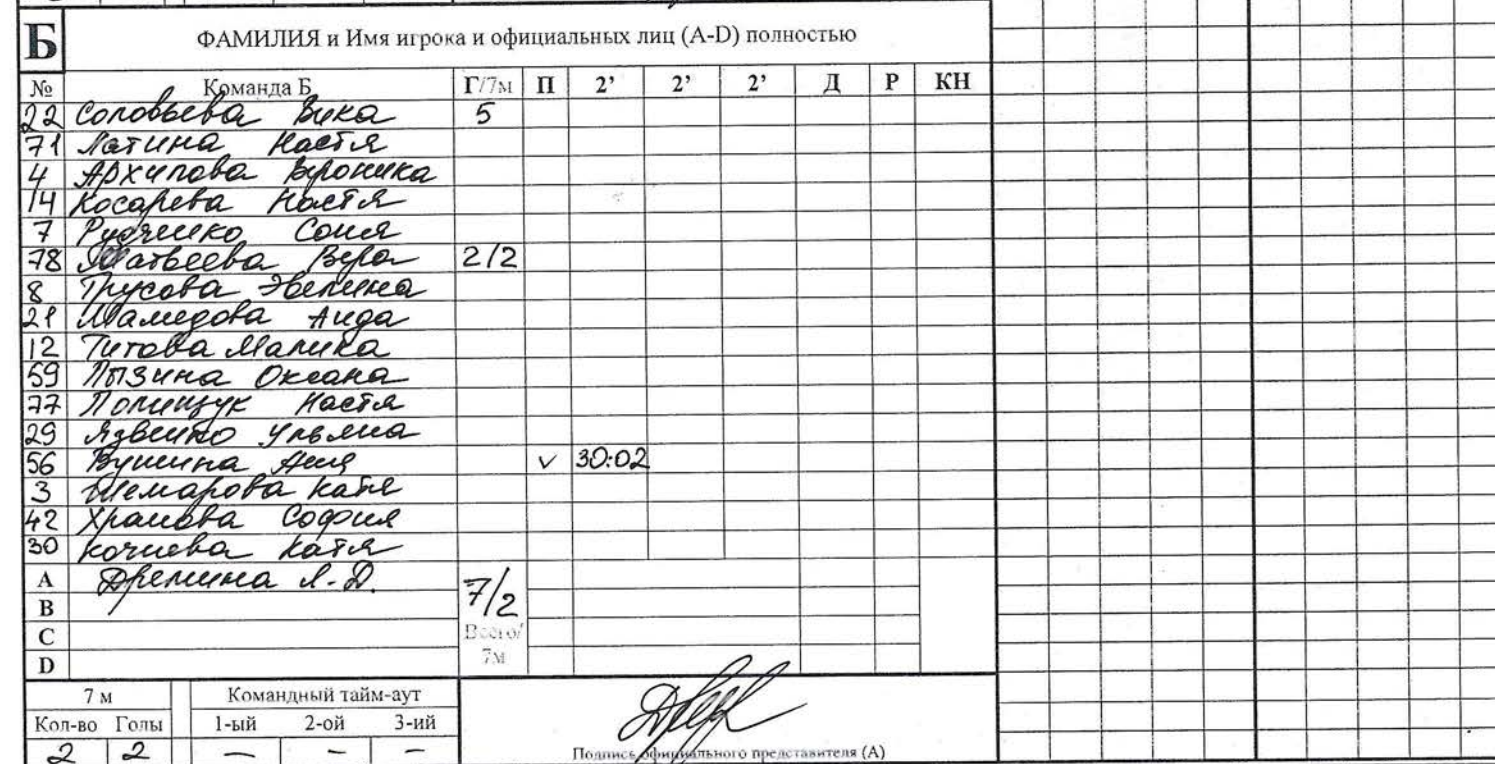 Б ФАМИЛИЯ и Имя игрока и официальных лиц (A-D) полностью
№ Команда Б Г/7м П 2' 2' 2' Д Р КН
22 Соловьева Вика 5
71 Латина Настя
4 Архипова Вероника
14 Косарева Настя
7 Рудченко Соня
78 Матвеева Вера 2/2
8 Трусова Эвелина
21 Мамедова Аида
12 Титова Малика
59 Лызина Оксана
77 Полищук Настя
29 Язвенко Ульяна
56 Вушина Аня V 30:02
3 Шемарова Катя
42 Храмова София
30 Кочнева Катя
A Дремина Л.Д. 7/2
B
C Всего/
D 7м
7 м Командный тайм-аут
Кол-во Голы 1-ый 2-ой 3-ий
2 2 – – – Подпись официального представителя (А)